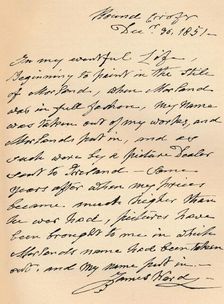 Round Croft
Decr. 30. 1851-
In my youthful Life,
Beginning to paint in the Stile
of Morland, when Morland
was in full fashion, my Name
was taken out of my works, and
Morlands put in, and as
such were by a picture Dealer
sent to Ireland - Some
Years after when my prices
became much higher than
he ever had, pictures have
been brought to me in which
Morlands name had been taken
out, and My name put in.
James Ward.